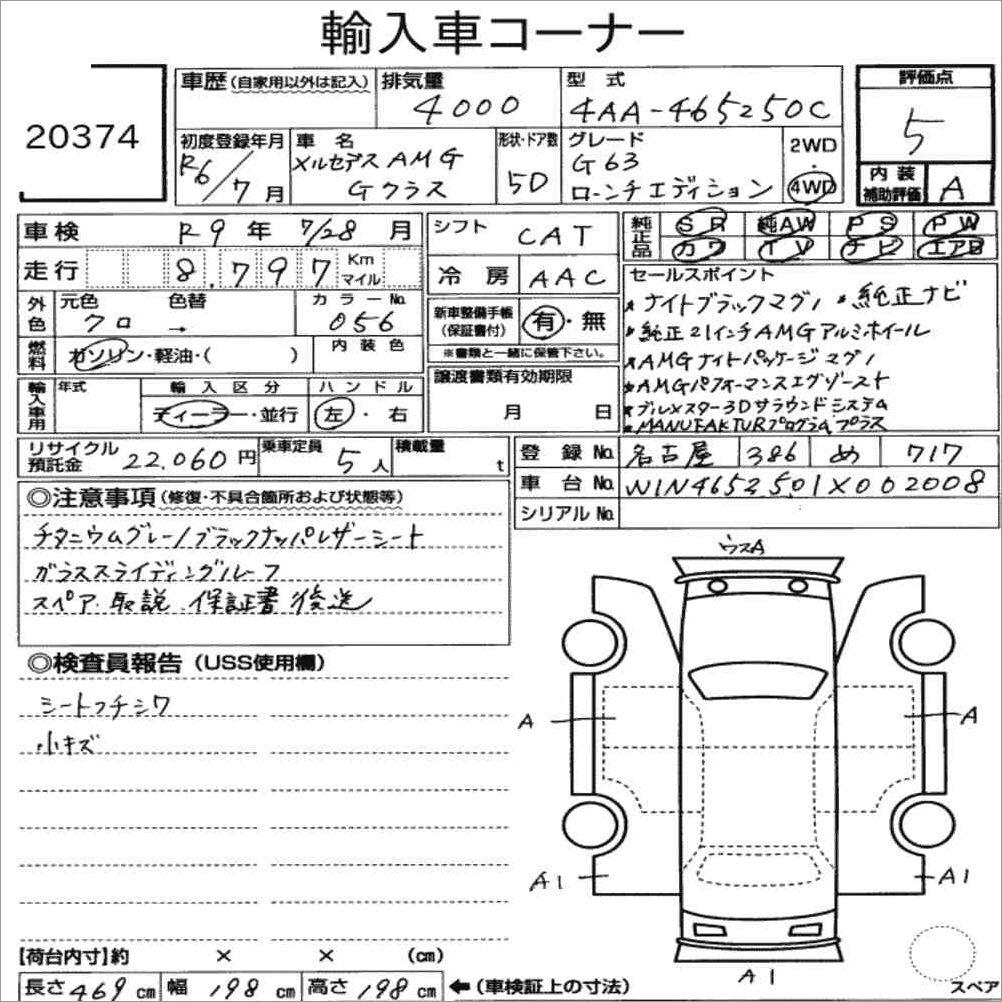 輸入車コーナー
20374
車歴(自家用以外は記入)
排気量
4000
型式
4AA-465250C
評価点
5
初度登録年月
R6/7月
車名
メルセデスAMG
Gクラス
形状・ドア数
5D
グレード
G63
ローンチエディション
2WD
・
4WD
内装
補助評価
A
車検 R9年 7/28月
走行 8,797 Km
マイル
シフト CAT
冷房 AAC
純正品
SR 純AW PS PW
カワ TV ナビ エアB
外色
元色 色替
クロ →
カラーNo.
056
新車整備手帳
(保証書付)
有・無
※書類と一緒に保管下さい。
燃料
ガソリン・軽油・( )
内装色
セールスポイント
* ナイトブラックマグノ * 純正ナビ
* 純正21インチAMGアルミホイール
* AMGナイトパッケージマグノ
* AMGパフォーマンスエグゾースト
* ブルメスター3Dサラウンドシステム
* MANUFAKTURプログラムプラス
輸入車用
年式
輸入区分
ディーラー・並行
ハンドル
左・右
譲渡書類有効期限
月 日
リサイクル
預託金 22,060円
乗車定員
5人
積載量
t
登録No. 名古屋 386 め 717
車台No. W1N4652501X002008
シリアルNo.
◎注意事項(修復・不具合箇所および状態等)
チタニウムグレー/ブラックナッパレザーシート
ガラススライディングルーフ
スペア.取説.保証書後送
◎検査員報告(USS使用欄)
シートフチシワ
小キズ
ウスA
A
A
A1
A1
A1
スペア
【荷台内寸】約 × × (cm)
長さ469cm 幅198cm 高さ198cm ←(車検証上の寸法)